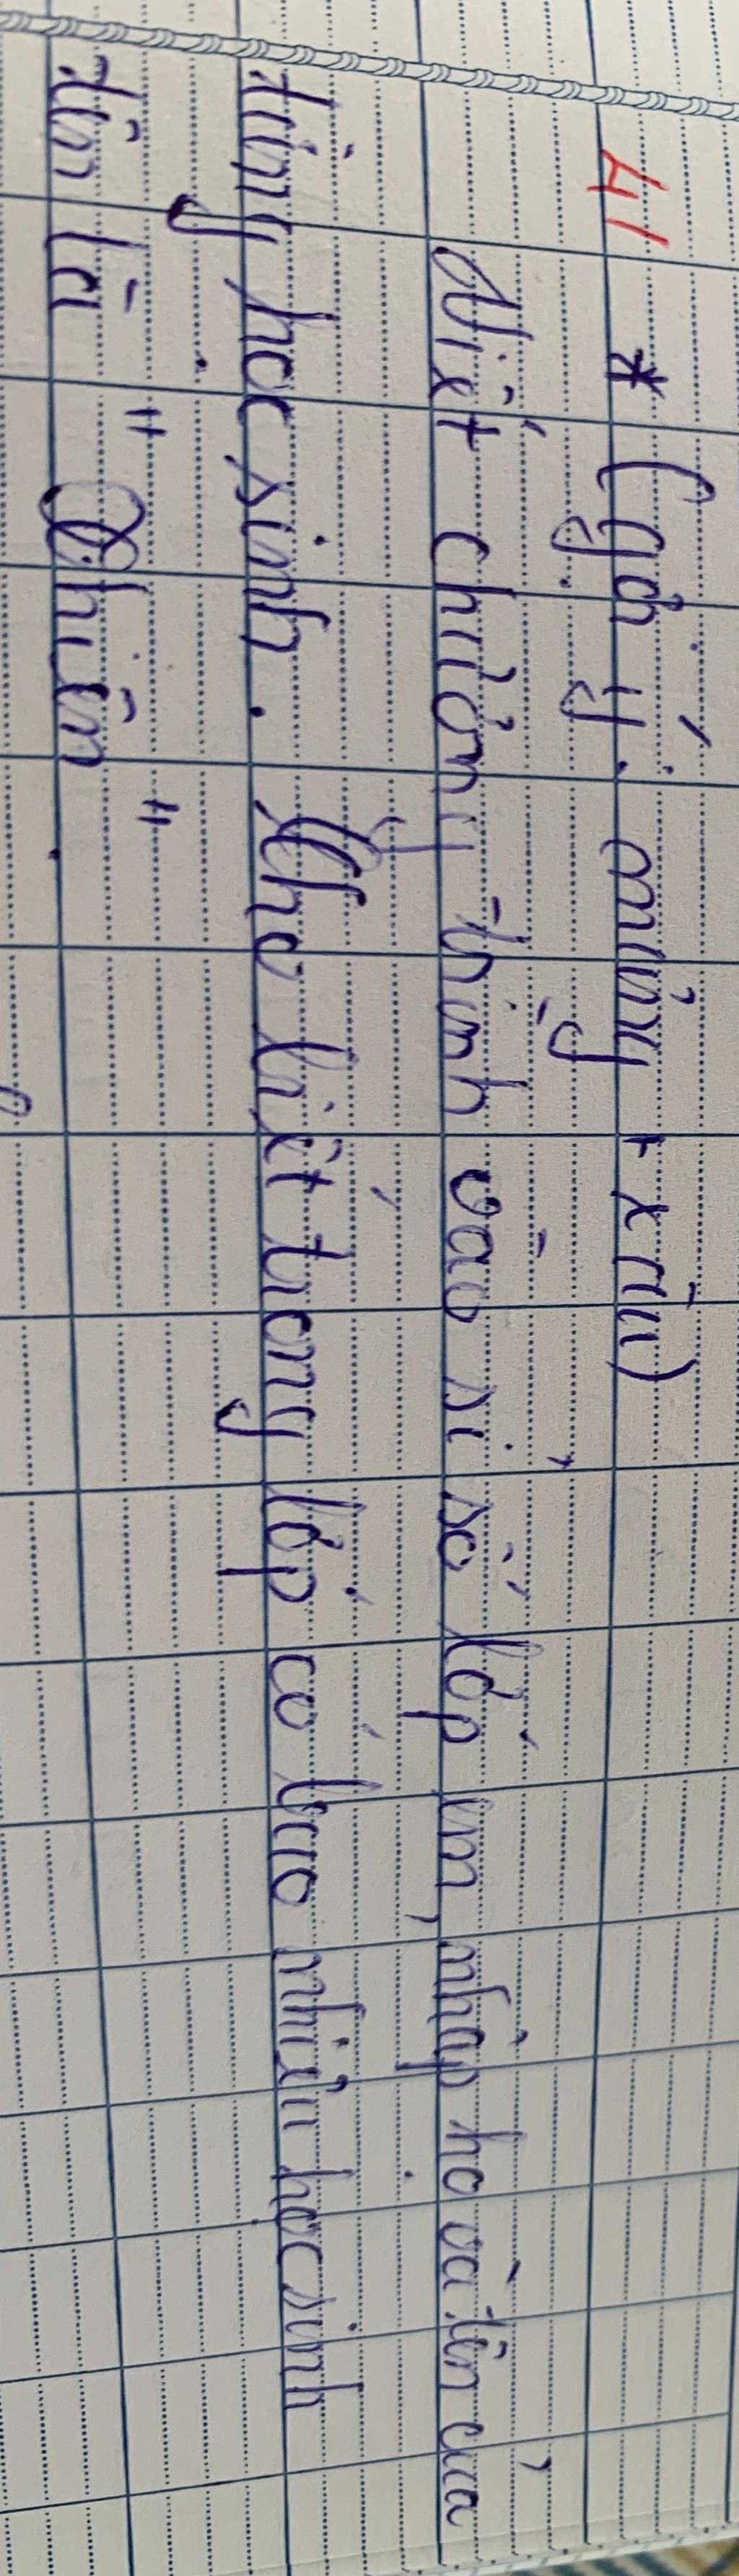 4/ * (gợi ý: mảng + xâu)
Viết chương trình vào sỉ số lớp em, nhập họ và tên của
từng học sinh. Cho biết trong lớp có bao nhiêu học sinh
tên là "Thiên".